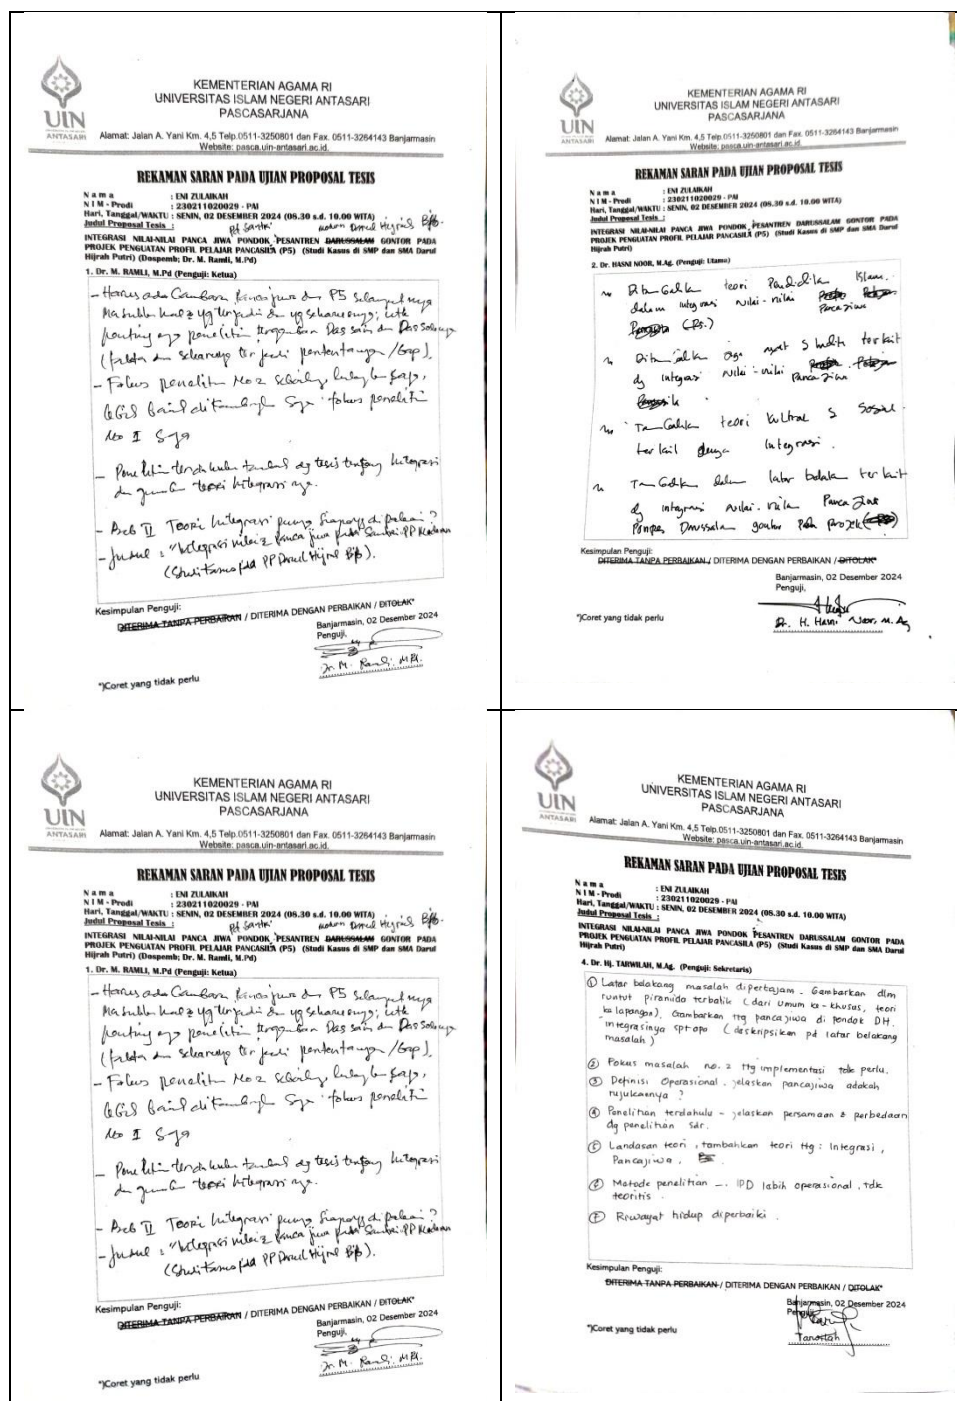 UIN
ANTASARI
KEMENTERIAN AGAMA RI
UNIVERSITAS ISLAM NEGERI ANTASARI
PASCASARJANA
Alamat: Jalan A. Yani Km. 4,5 Telp.0511-3250801 dan Fax. 0511-3264143 Banjarmasin
Website: pasca.uin-antasari.ac.id.
REKAMAN SARAN PADA UJIAN PROPOSAL TESIS
Nama : ENI ZULAIKAH
NIM - Prodi : 230211020029 - PAI
Hari, Tanggal/WAKTU : SENIN, 02 DESEMBER 2024 (08.30 s.d. 10.00 WITA)
Judul Proposal Tesis :
INTEGRASI NILAI-NILAI PANCA JIWA PONDOK PESANTREN DARUSSALAM GONTOR PADA
PROJEK PENGUATAN PROFIL PELAJAR PANCASILA (P5) (Studi Kasus di SMP dan SMA Darul
Hijrah Putri) (Dospemb; Dr. M. Ramli, M.Pd)
1. Dr. M. RAMLI, M.Pd (Penguji: Ketua)
- Harus ada Gambaran panca jiwa dan P5 selanjutnya
penting nya penelitian
- Fokus penelitian No 2
fokus penelitian
No 1 saja
- Penelitian terdahulu tambah dg tesis tentang integrasi
dan teori integrasi nya.
- Bab II Teori Integrasi punya siapa yg di pakai?
- Judul : "Integrasi nilai2 panca jiwa pada Santri PP Modern
(Studi Kasus pada PP Darul Hijrah
Kesimpulan Penguji:
DITERIMA TANPA PERBAIKAN / DITERIMA DENGAN PERBAIKAN / DITOLAK*
Banjarmasin, 02 Desember 2024
Penguji,
Dr. M. Ramli, M.Pd.
*)Coret yang tidak perlu
UIN
ANTASARI
KEMENTERIAN AGAMA RI
UNIVERSITAS ISLAM NEGERI ANTASARI
PASCASARJANA
Alamat: Jalan A. Yani Km. 4,5 Telp.0511-3250801 dan Fax. 0511-3264143 Banjarmasin
Website: pasca.uin-antasari.ac.id.
REKAMAN SARAN PADA UJIAN PROPOSAL TESIS
Nama : ENI ZULAIKAH
NIM - Prodi : 230211020029 - PAI
Hari, Tanggal/WAKTU : SENIN, 02 DESEMBER 2024 (08.30 s.d. 10.00 WITA)
Judul Proposal Tesis :
INTEGRASI NILAI-NILAI PANCA JIWA PONDOK PESANTREN DARUSSALAM GONTOR PADA
PROJEK PENGUATAN PROFIL PELAJAR PANCASILA (P5) (Studi Kasus di SMP dan SMA Darul
Hijrah Putri)
2. Dr. HASNI NOOR, M.Ag. (Penguji: Utama)
teori Pendidikan Islam
dalam integrasi nilai-nilai Panca jiwa
(P5.)
terkait
dg integrasi nilai-nilai Panca jiwa
Tambahkan teori kultural & sosial
terkait dengan integrasi.
Tambahkan dalam latar belakang terkait
dg integrasi nilai-nilai Panca Jiwa
Ponpes Darussalam gontor Pada Projek
Kesimpulan Penguji:
DITERIMA TANPA PERBAIKAN / DITERIMA DENGAN PERBAIKAN / DITOLAK*
Banjarmasin, 02 Desember 2024
Penguji,
Dr. H. Hasni Noor, M.Ag
*)Coret yang tidak perlu
UIN
ANTASARI
KEMENTERIAN AGAMA RI
UNIVERSITAS ISLAM NEGERI ANTASARI
PASCASARJANA
Alamat: Jalan A. Yani Km. 4,5 Telp.0511-3250801 dan Fax. 0511-3264143 Banjarmasin
Website: pasca.uin-antasari.ac.id.
REKAMAN SARAN PADA UJIAN PROPOSAL TESIS
Nama : ENI ZULAIKAH
NIM - Prodi : 230211020029 - PAI
Hari, Tanggal/WAKTU : SENIN, 02 DESEMBER 2024 (08.30 s.d. 10.00 WITA)
Judul Proposal Tesis :
INTEGRASI NILAI-NILAI PANCA JIWA PONDOK PESANTREN DARUSSALAM GONTOR PADA
PROJEK PENGUATAN PROFIL PELAJAR PANCASILA (P5) (Studi Kasus di SMP dan SMA Darul
Hijrah Putri) (Dospemb; Dr. M. Ramli, M.Pd)
1. Dr. M. RAMLI, M.Pd (Penguji: Ketua)
- Harus ada Gambaran panca jiwa dan P5 selanjutnya
penting nya penelitian
- Fokus penelitian No 2
fokus penelitian
No 1 saja
- Penelitian terdahulu tambah dg tesis tentang integrasi
dan teori integrasi nya.
- Bab II Teori Integrasi punya siapa yg di pakai?
- Judul : "Integrasi nilai2 panca jiwa pada Santri PP Modern
(Studi Kasus pada PP Darul Hijrah
Kesimpulan Penguji:
DITERIMA TANPA PERBAIKAN / DITERIMA DENGAN PERBAIKAN / DITOLAK*
Banjarmasin, 02 Desember 2024
Penguji,
Dr. M. Ramli, M.Pd.
*)Coret yang tidak perlu
UIN
ANTASARI
KEMENTERIAN AGAMA RI
UNIVERSITAS ISLAM NEGERI ANTASARI
PASCASARJANA
Alamat: Jalan A. Yani Km. 4,5 Telp.0511-3250801 dan Fax. 0511-3264143 Banjarmasin
Website: pasca.uin-antasari.ac.id.
REKAMAN SARAN PADA UJIAN PROPOSAL TESIS
Nama : ENI ZULAIKAH
NIM - Prodi : 230211020029 - PAI
Hari, Tanggal/WAKTU : SENIN, 02 DESEMBER 2024 (08.30 s.d. 10.00 WITA)
Judul Proposal Tesis :
INTEGRASI NILAI-NILAI PANCA JIWA PONDOK PESANTREN DARUSSALAM GONTOR PADA
PROJEK PENGUATAN PROFIL PELAJAR PANCASILA (P5) (Studi Kasus di SMP dan SMA Darul
Hijrah Putri)
4. Dr. Hj. TARWILAH, M.Ag. (Penguji: Sekretaris)
① Latar belakang masalah dipertajam. Gambarkan dlm
runtut piramida terbalik (dari umum ke-khusus, teori
ke lapangan). Gambarkan ttg pancajiwa di pondok DH.
integrasinya spt apa (deskripsikan pd latar belakang
masalah)
② Fokus masalah no. 2 ttg implementasi tdk perlu.
③ Definisi Operasional. jelaskan pancajiwa adakah
rujukannya ?
④ Penelitian terdahulu - jelaskan persamaan & perbedaan
dg penelitian sdr.
⑤ Landasan teori, tambahkan teori ttg : Integrasi,
Pancajiwa,
⑥ Metode penelitian -. IPD labih operasional, tdk
teoritis.
⑦ Riwayat hidup diperbaiki.
Kesimpulan Penguji:
DITERIMA TANPA PERBAIKAN / DITERIMA DENGAN PERBAIKAN / DITOLAK*
Banjarmasin, 02 Desember 2024
Penguji,
*)Coret yang tidak perlu